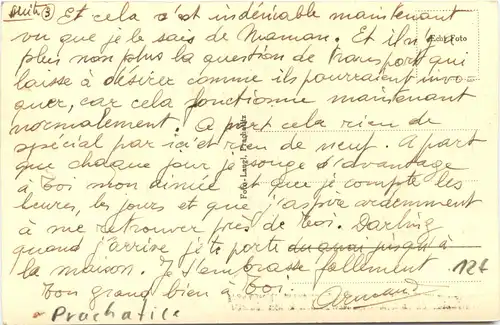 suite (3)
Et cela c'est indéniable maintenant
vu que je le sais de Maman. Et il n'y a
plus non plus la question de transport qui
laisse à désirer comme ils pourraient invo-
quer, car cela fonctionne maintenant
normalement. A part cela rien de
spécial par ici et rien de neuf. A part
que chaque jour je songe d'avantage
à toi mon aimée et que je compte les
heures, les jours et que j'aspire ardemment
à me retrouver près de toi. Darling
quand j'arrive je te porte jusqu'à
la maison. Je t'embrasse follement
Ton grand bien à toi. Armand
Echt Foto
Foto-Langl, Prachatitz
12€
Prachatice